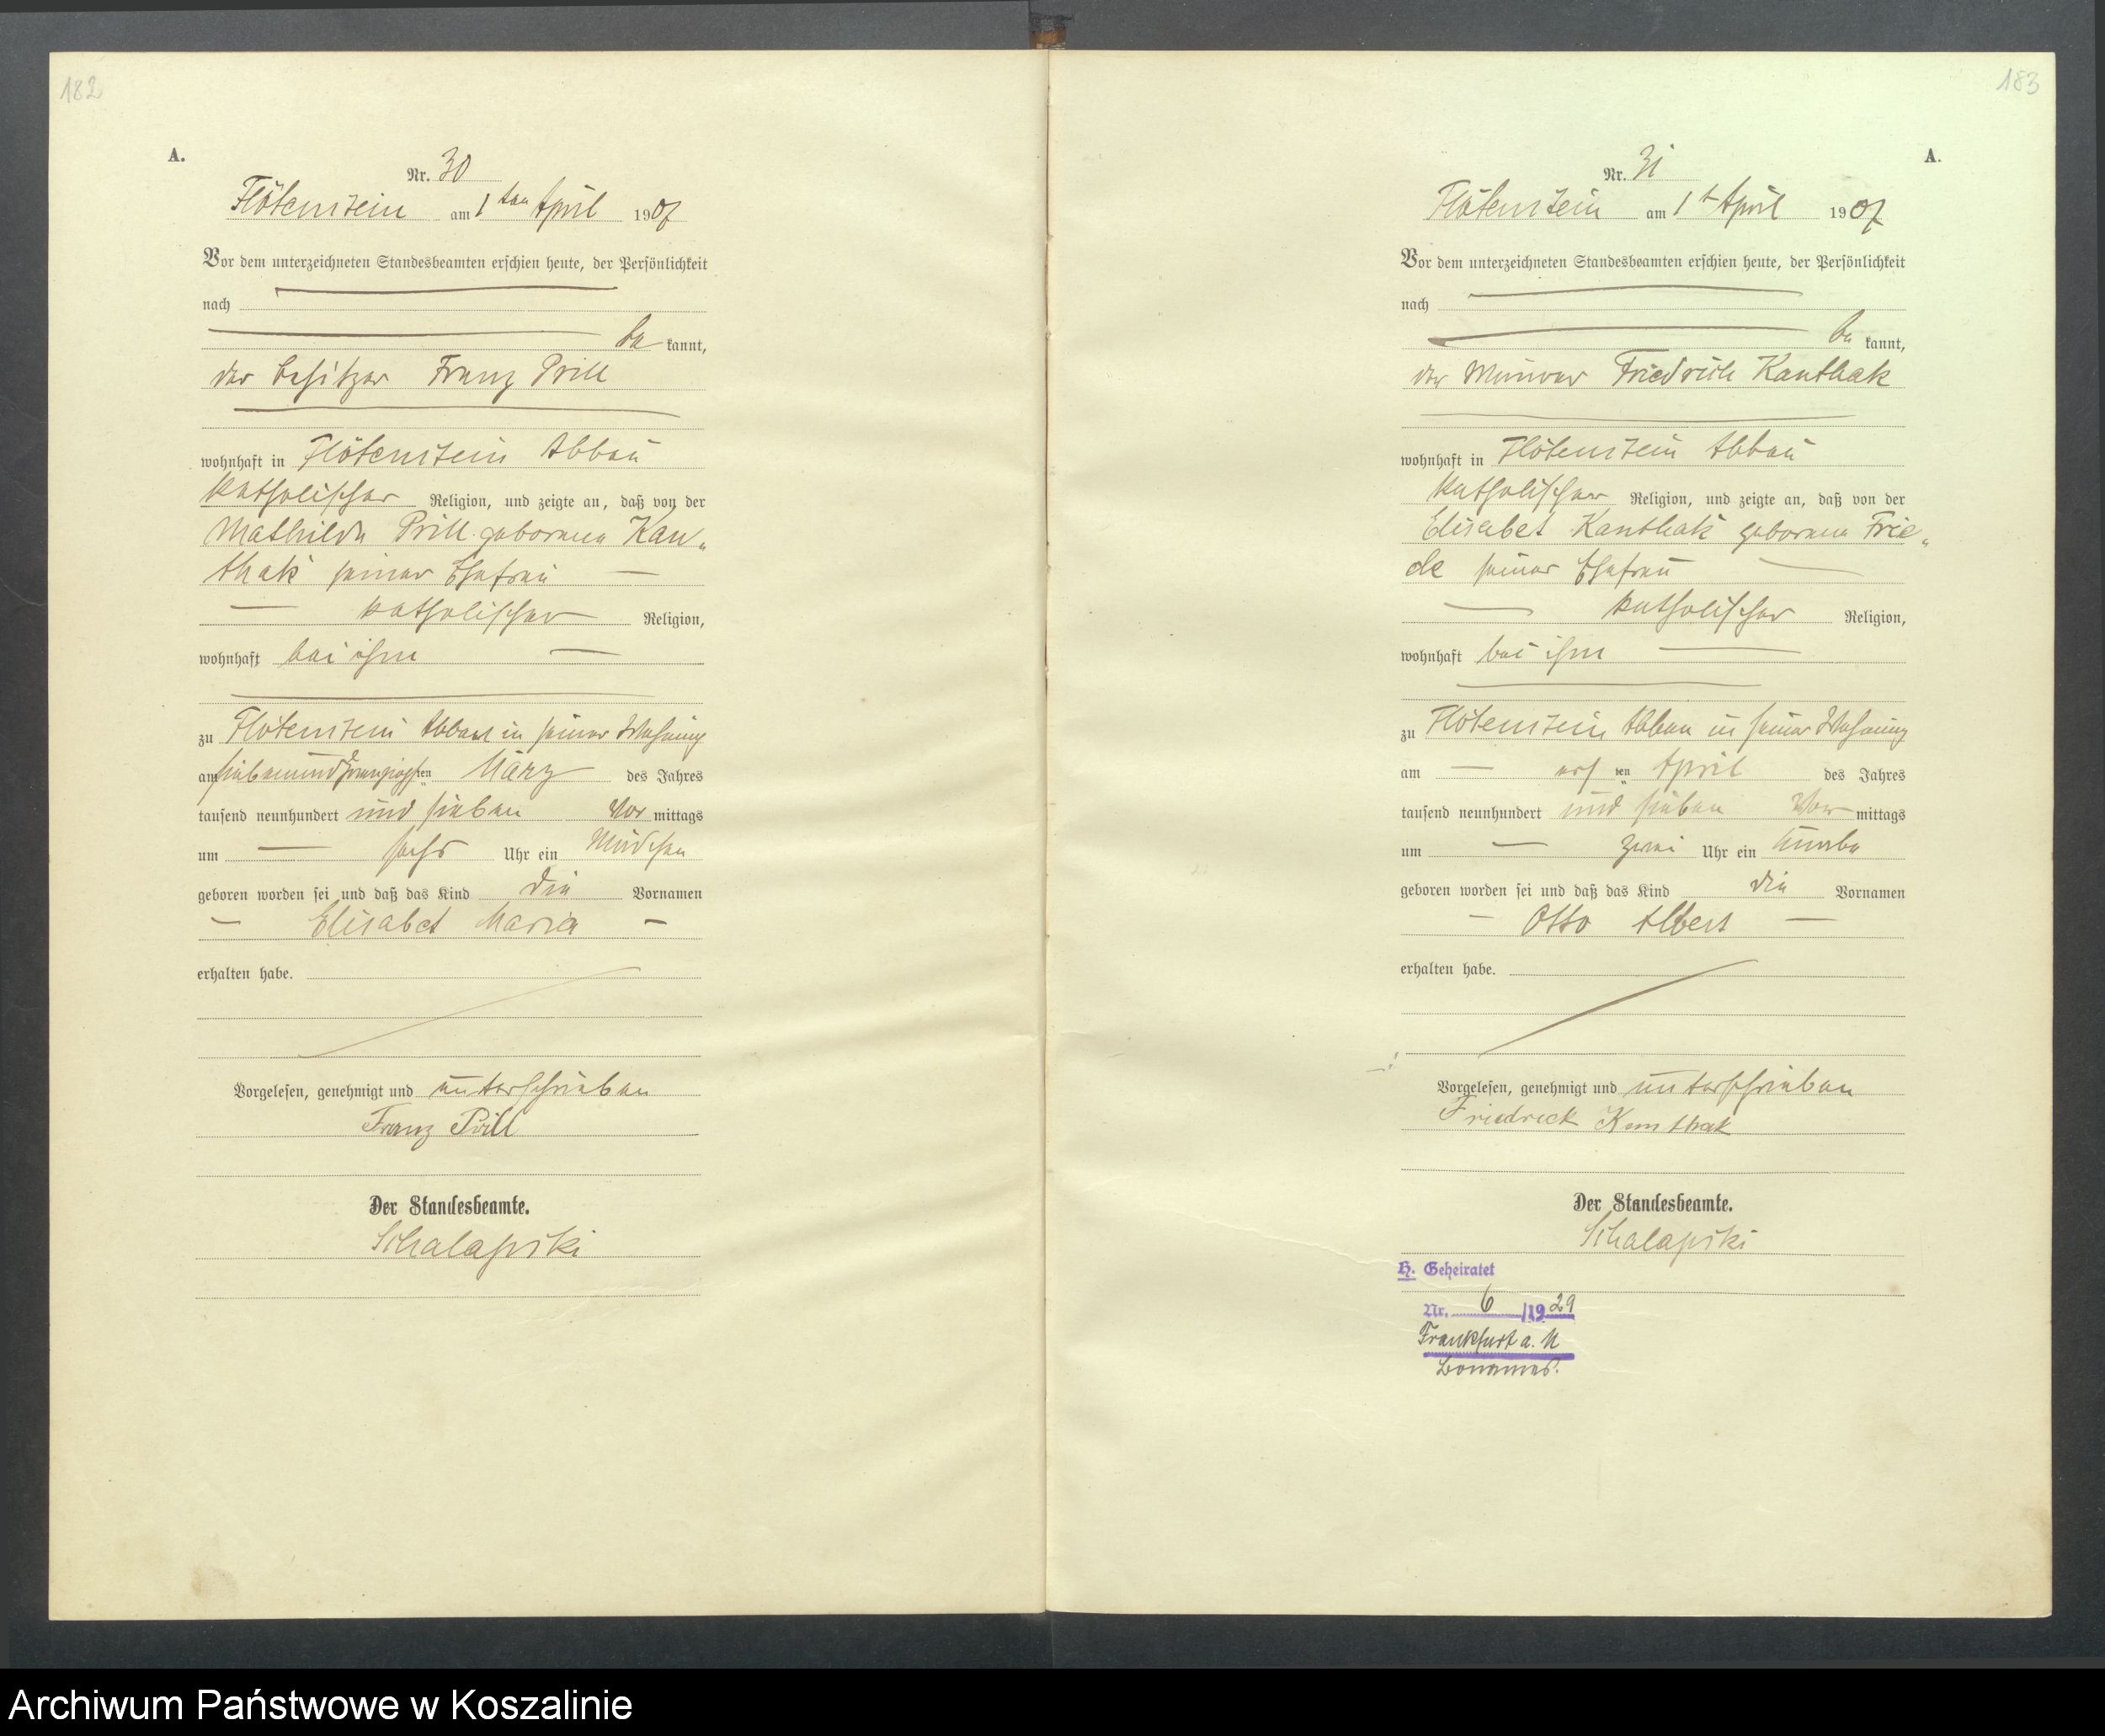 182
A.
Nr. 30
Flötenstein am 1ten April 1907
Vor dem unterzeichneten Standesbeamten erschien heute, der Persönlichkeit
nach
be kannt,
der Besitzer Franz Prill
wohnhaft in Flötenstein Abbau
katholischer Religion, und zeigte an, daß von der
Mathilde Prill geborenen Kan„
thak seiner Ehefrau
katholischer Religion,
wohnhaft bei ihm
zu Flötenstein Abbau in seiner Wohnung
am siebenundzwanzigsten März des Jahres
tausend neunhundert und sieben Vor mittags
um sechs Uhr ein Mädchen
geboren worden sei und daß das Kind die Vornamen
Elisabet Maria
erhalten habe.
Vorgelesen, genehmigt und unterschrieben
Franz Prill
Der Standesbeamte.
Schalapski
183
A.
Nr. 31
Flötenstein am 1t April 1907
Vor dem unterzeichneten Standesbeamten erschien heute, der Persönlichkeit
nach
be kannt,
der Maurer Friedrich Kanthak
wohnhaft in Flötenstein Abbau
katholischer Religion, und zeigte an, daß von der
Elisabet Kanthak geborenen Frie„
de seiner Ehefrau
katholischer Religion,
wohnhaft bei ihm
zu Flötenstein Abbau in seiner Wohnung
am ersten April des Jahres
tausend neunhundert und sieben Vor mittags
um zwei Uhr ein Knabe
geboren worden sei und daß das Kind die Vornamen
Otto Albert
erhalten habe.
Vorgelesen, genehmigt und unterschrieben
Friedrick Kanthak
Der Standesbeamte.
Schalapski
H. Geheiratet
Nr. 6 /1929
Frankfurt a. M
Bonames.
Archiwum Państwowe w Koszalinie